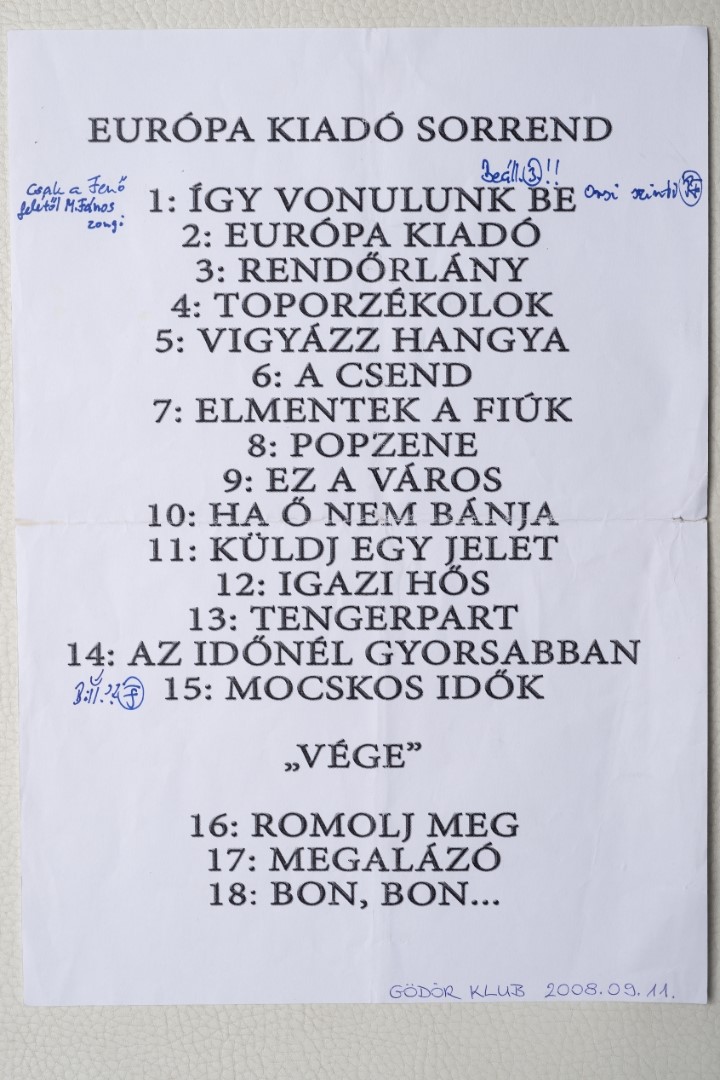 EURÓPA KIADÓ SORREND
Beáll. 3. !!
Csak a Jenő
felétől M. János
zongi
1: ÍGY VONULUNK BE
Orsi szinti
2: EURÓPA KIADÓ
3: RENDŐRLÁNY
4: TOPORZÉKOLOK
5: VIGYÁZZ HANGYA
6: A CSEND
7: ELMENTEK A FIÚK
8: POPZENE
9: EZ A VÁROS
10: HA Ő NEM BÁNJA
11: KÜLDJ EGY JELET
12: IGAZI HŐS
13: TENGERPART
14: AZ IDŐNÉL GYORSABBAN
15: MOCSKOS IDŐK
„VÉGE”
16: ROMOLJ MEG
17: MEGALÁZÓ
18: BON, BON...
GÖDÖR KLUB 2008.09.11.